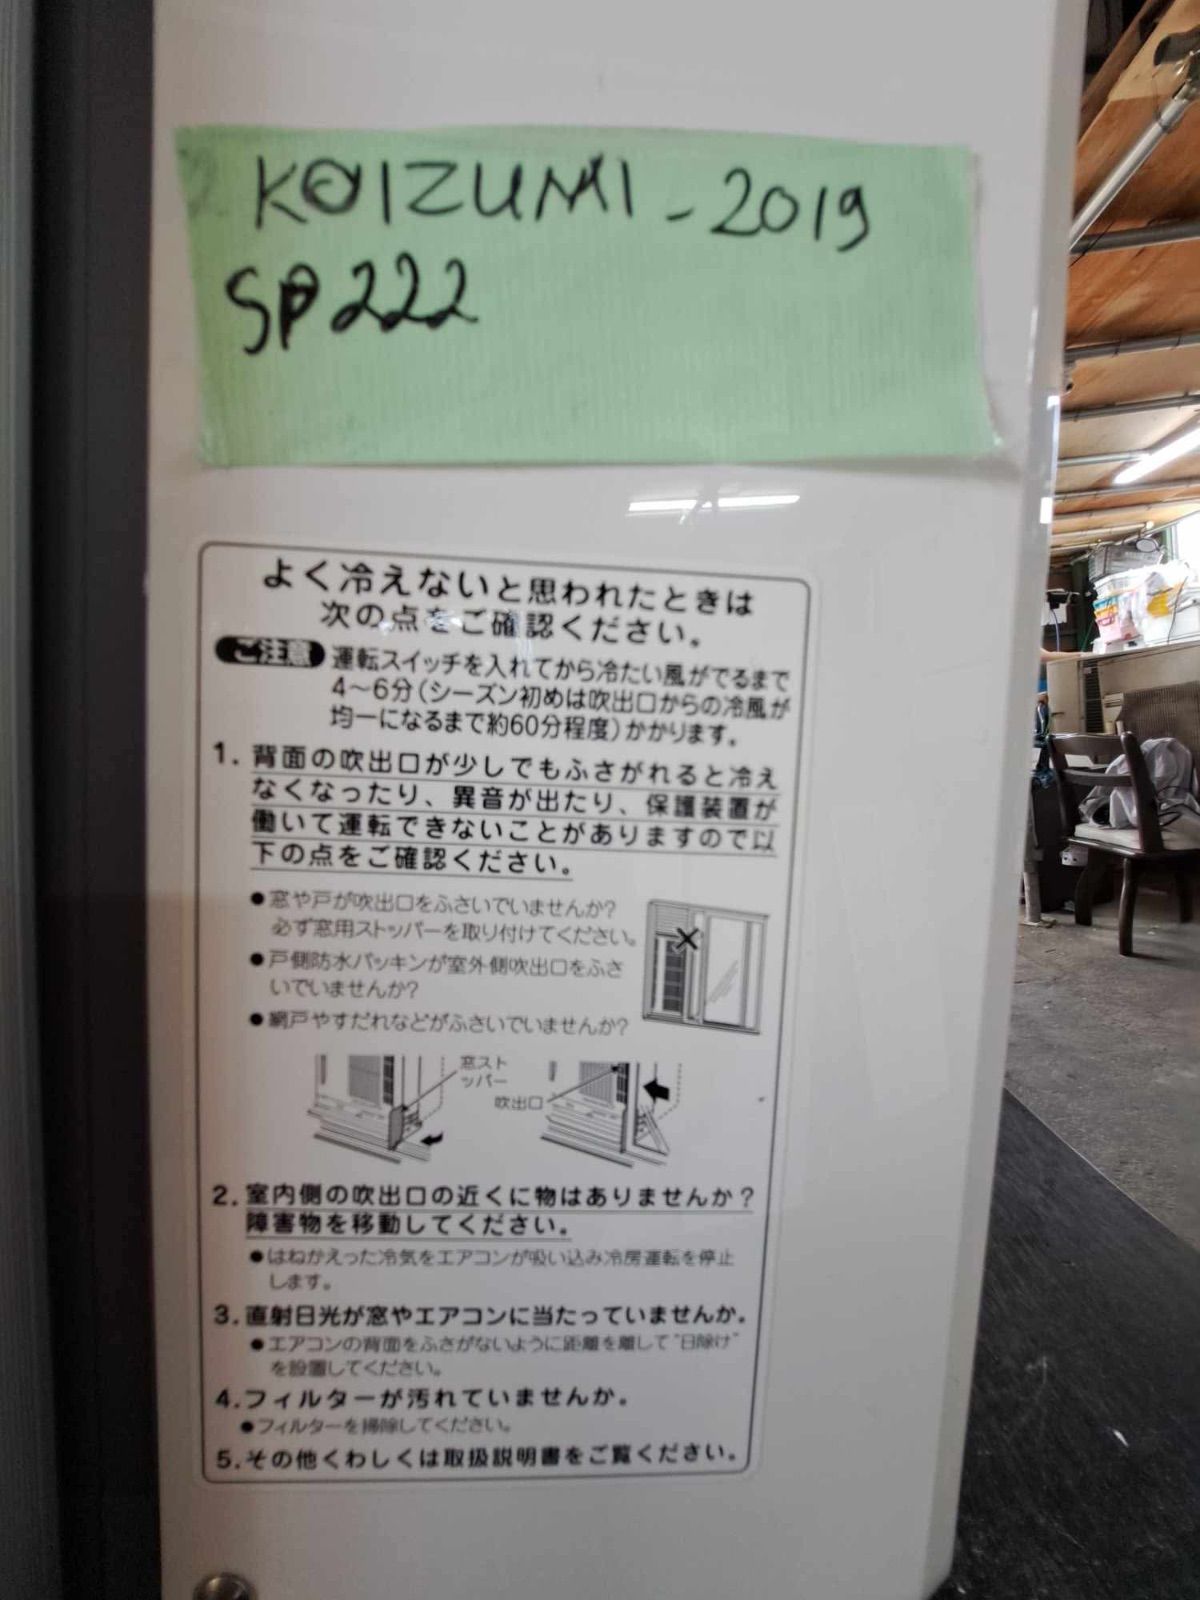 KOIZUMI - 2019
SP222
よく冷えないと思われたときは
次の点をご確認ください。
ご注意 運転スイッチを入れてから冷たい風がでるまで
4〜6分(シーズン初めは吹出口からの冷風が
均一になるまで約60分程度)かかります。
1. 背面の吹出口が少しでもふさがれると冷え
なくなったり、異音が出たり、保護装置が
働いて運転できないことがありますので以
下の点をご確認ください。
●窓や戸が吹出口をふさいでいませんか?
必ず窓用ストッパーを取り付けてください。
●戸側防水パッキンが室外側吹出口をふさ
いでいませんか?
●網戸やすだれなどがふさいでいませんか?
窓スト
ッパー
吹出口
2. 室内側の吹出口の近くに物はありませんか?
障害物を移動してください。
●はねかえった冷気をエアコンが吸い込み冷房運転を停止
します。
3. 直射日光が窓やエアコンに当たっていませんか。
●エアコンの背面をふさがないように距離を離して"日除け"
を設置してください。
4. フィルターが汚れていませんか。
●フィルターを掃除してください。
5. その他くわしくは取扱説明書をご覧ください。